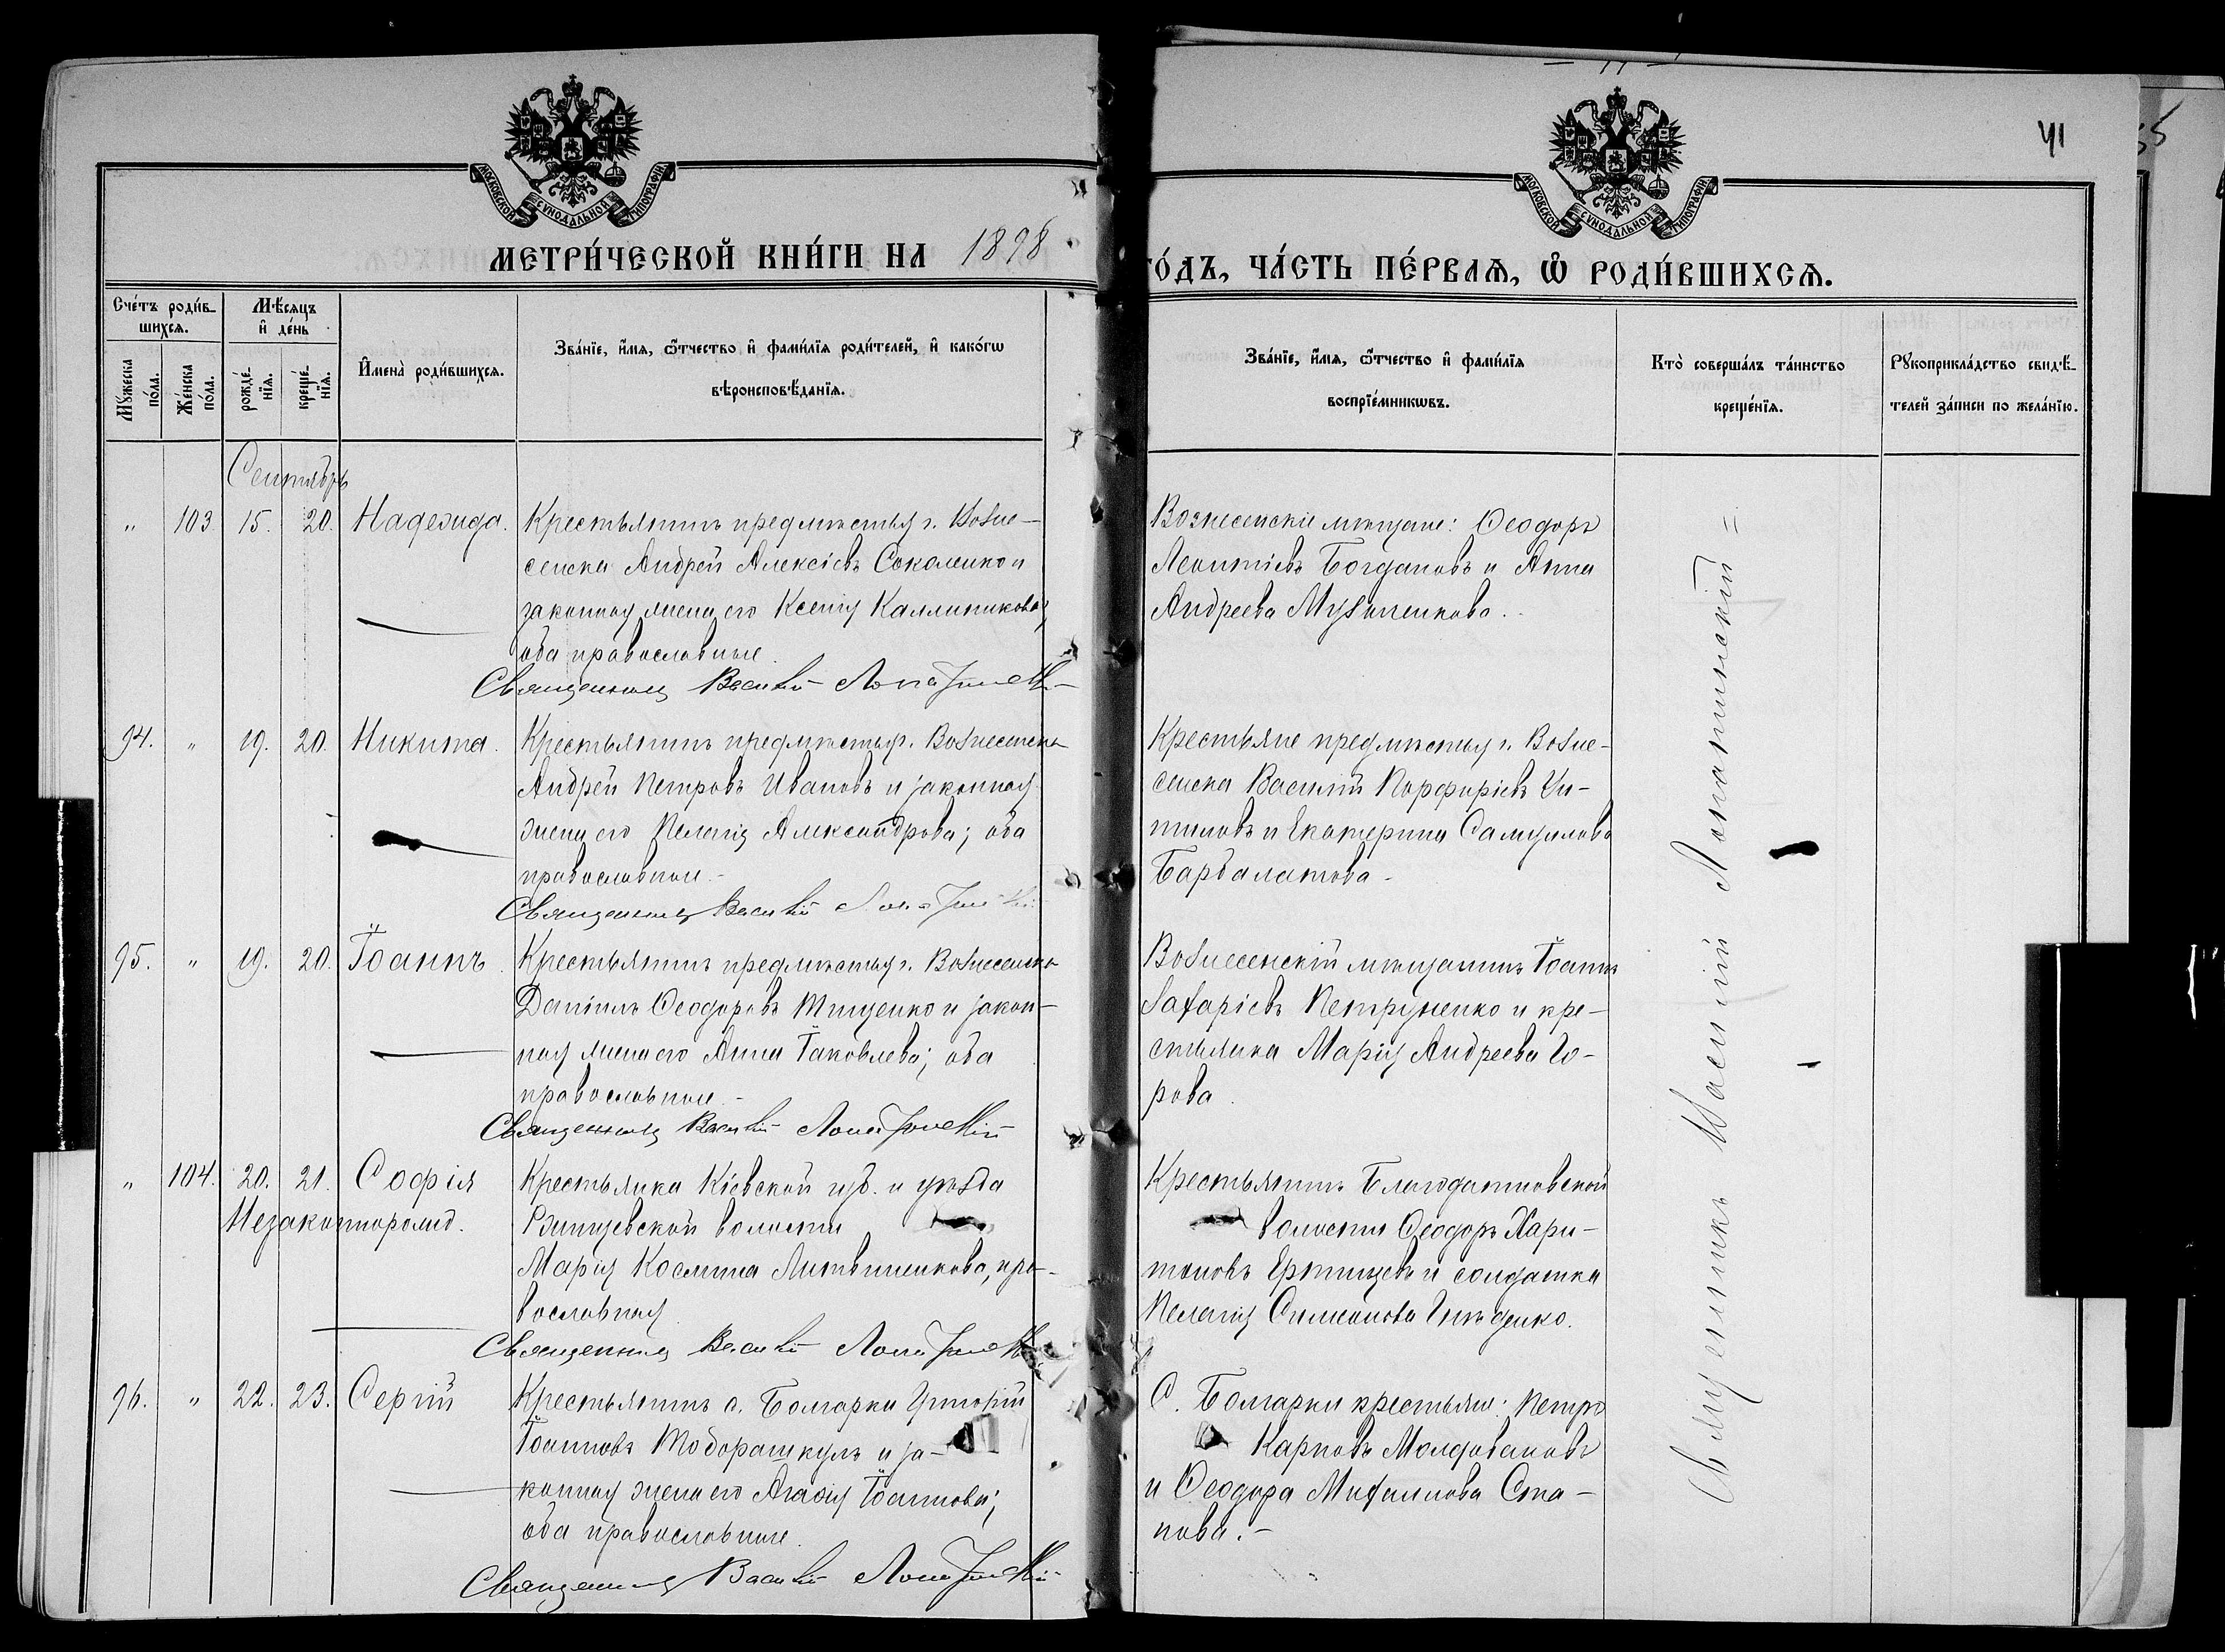 — 11 —
41
35
МОСКОВСКОЙ СѴНОДАЛЬНОЙ ТИПОГРАФІИ
МОСКОВСКОЙ СѴНОДАЛЬНОЙ ТИПОГРАФІИ
МЕТРИ́ЧЕСКОЙ КНИ́ГИ НА 1898
ГО́ДЪ, ЧА́СТЬ ПЕ́РВАѦ, Ѡ҆ РОДИ́ВШИХСѦ.
Сче́тъ роди́в-
шихсѧ.
Мѣ́сѧцъ
и҆ де́нь
Мꙋ́жеска
по́ла.
Же́нска
по́ла.
рожде́-
нїѧ.
креще́-
нїѧ.
И҆мена̀ роди́вшихсѧ.
Зва́нїе, и҆́мѧ, ѻ҆́тчество и҆ фами́лїѧ роди́телей, и҆ како́гѡ
вѣроисповѣ́данїѧ.
Зва́нїе, и҆́мѧ, ѻ҆́тчество и҆ фами́лїѧ
воспрїе́мникѡвъ.
Кто̀ соверша́лъ та́инство
креще́нїѧ.
Рꙋкоприкла́дство свидѣ́-
телей за́писи по жела́нїю.
Сентябрь
" 103 15. 20. Надежда.
Крестьянинъ предмѣстья г. Возне-
сенска Андрей Алексіевъ Соколенко и
законная жена его Ксенія Каллиникова;
оба православные.
Священникъ Василій Лопатинскій
Вознесенскіе мѣщане: Ѳеодоръ
Леонтіевъ Богдановъ и Анна
Андреева Музыченкова.
94. " 19. 20. Никита.
Крестьянинъ предмѣстья г. Вознесенска
Андрей Петровъ Ивановъ и законная
жена его Пелагія Александрова; оба
православные.-
Священникъ Василій Лопатинскій
Крестьяне предмѣстья г. Возне-
сенска Василій Порфиріевъ
и Екатерина Самуилова
95. " 19. 20. Іоаннъ.
Крестьянинъ предмѣстья г. Вознесенска
Даніилъ Ѳеодоровъ Тищенко и закон-
ная жена его Анна Іаковлева; оба
православные.-
Священникъ Василій Лопатинскій
Вознесенскій мѣщанинъ Іоаннъ
Захаріевъ Петруненко и кре-
стьянка Марія Андреева Го-
рова.
" 104. 20. 21. София
Незаконнорожд.
Крестьянка Кіевской губ. и уѣзда
волости
Марія Космина Литвиненкова, пра-
вославная.
Священникъ Василій Лопатинскій
Крестьянинъ Благодатновской
волости Ѳеодоръ Хари-
тоновъ и солдатка
Пелагія Симеонова
96. " 22. 23. Сергій
Крестьянинъ с. Болгарки Григорій
Іоанновъ Тодорашкулъ и за-
конная жена его Агаѳія Іоаннова;
оба православные.
Священникъ Василій Лопатинскій
С. Болгарки крестьяне: Петръ
Карповъ Молдовановъ
и Ѳеодора Михаилова Ста-
нова.-
Священникъ Василій Лопатинскій =